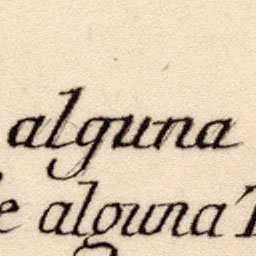 alguna
alguna